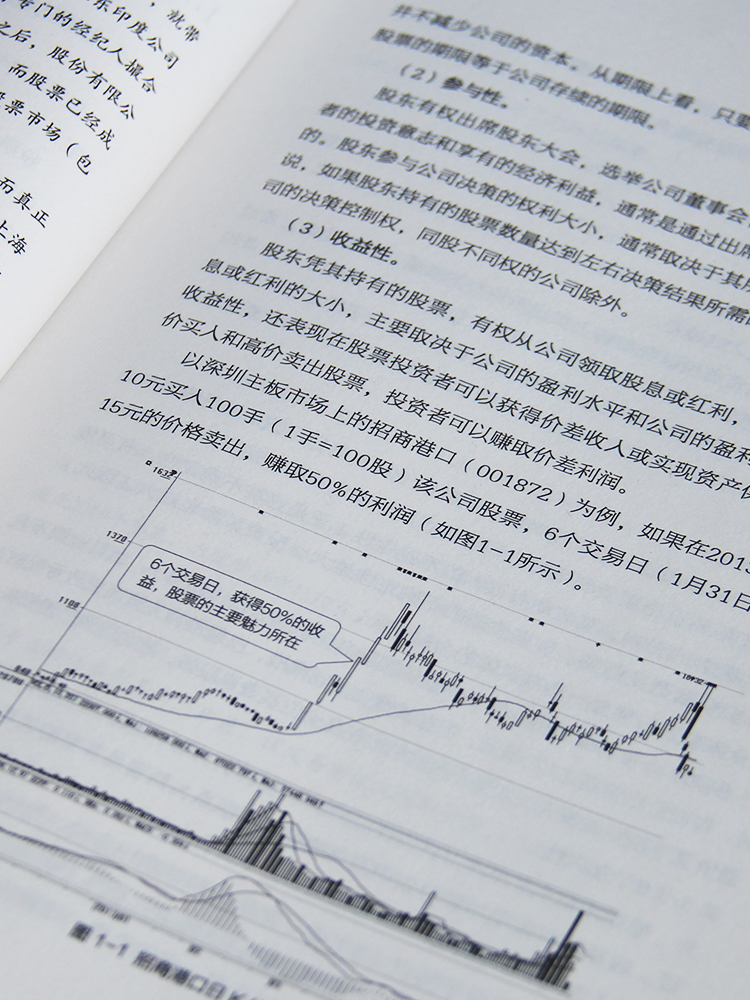 ，就带
东印度公司
专门的经纪人撮合
之后，股份有限公
而股票已经成
股票市场（包
而真正
上海
并不减少公司的资本。从期限上看，只要
股票的期限等于公司存续的期限。
（2）参与性。
股东有权出席股东大会，选举公司董事会
者的投资意志和享有的经济利益，通常是通过出席
的。股东参与公司决策的权利大小，通常取决于其
说，如果股东持有的股票数量达到左右决策结果所需
司的决策控制权，同股不同权的公司除外。
（3）收益性。
股东凭其持有的股票，有权从公司领取股息或红利，
息或红利的大小，主要取决于公司的盈利水平和公司的盈利
收益性，还表现在股票投资者可以获得价差收入或实现资产保
价买入和高价卖出股票，投资者可以赚取价差利润。
以深圳主板市场上的招商港口（001872）为例，如果在2013
10元买入100手（1手=100股）该公司股票，6个交易日（1月31日
15元的价格卖出，赚取50%的利润（如图1-1所示）。
6个交易日，获得50%的收
益，股票的主要魅力所在
图 1-1 招商港口日